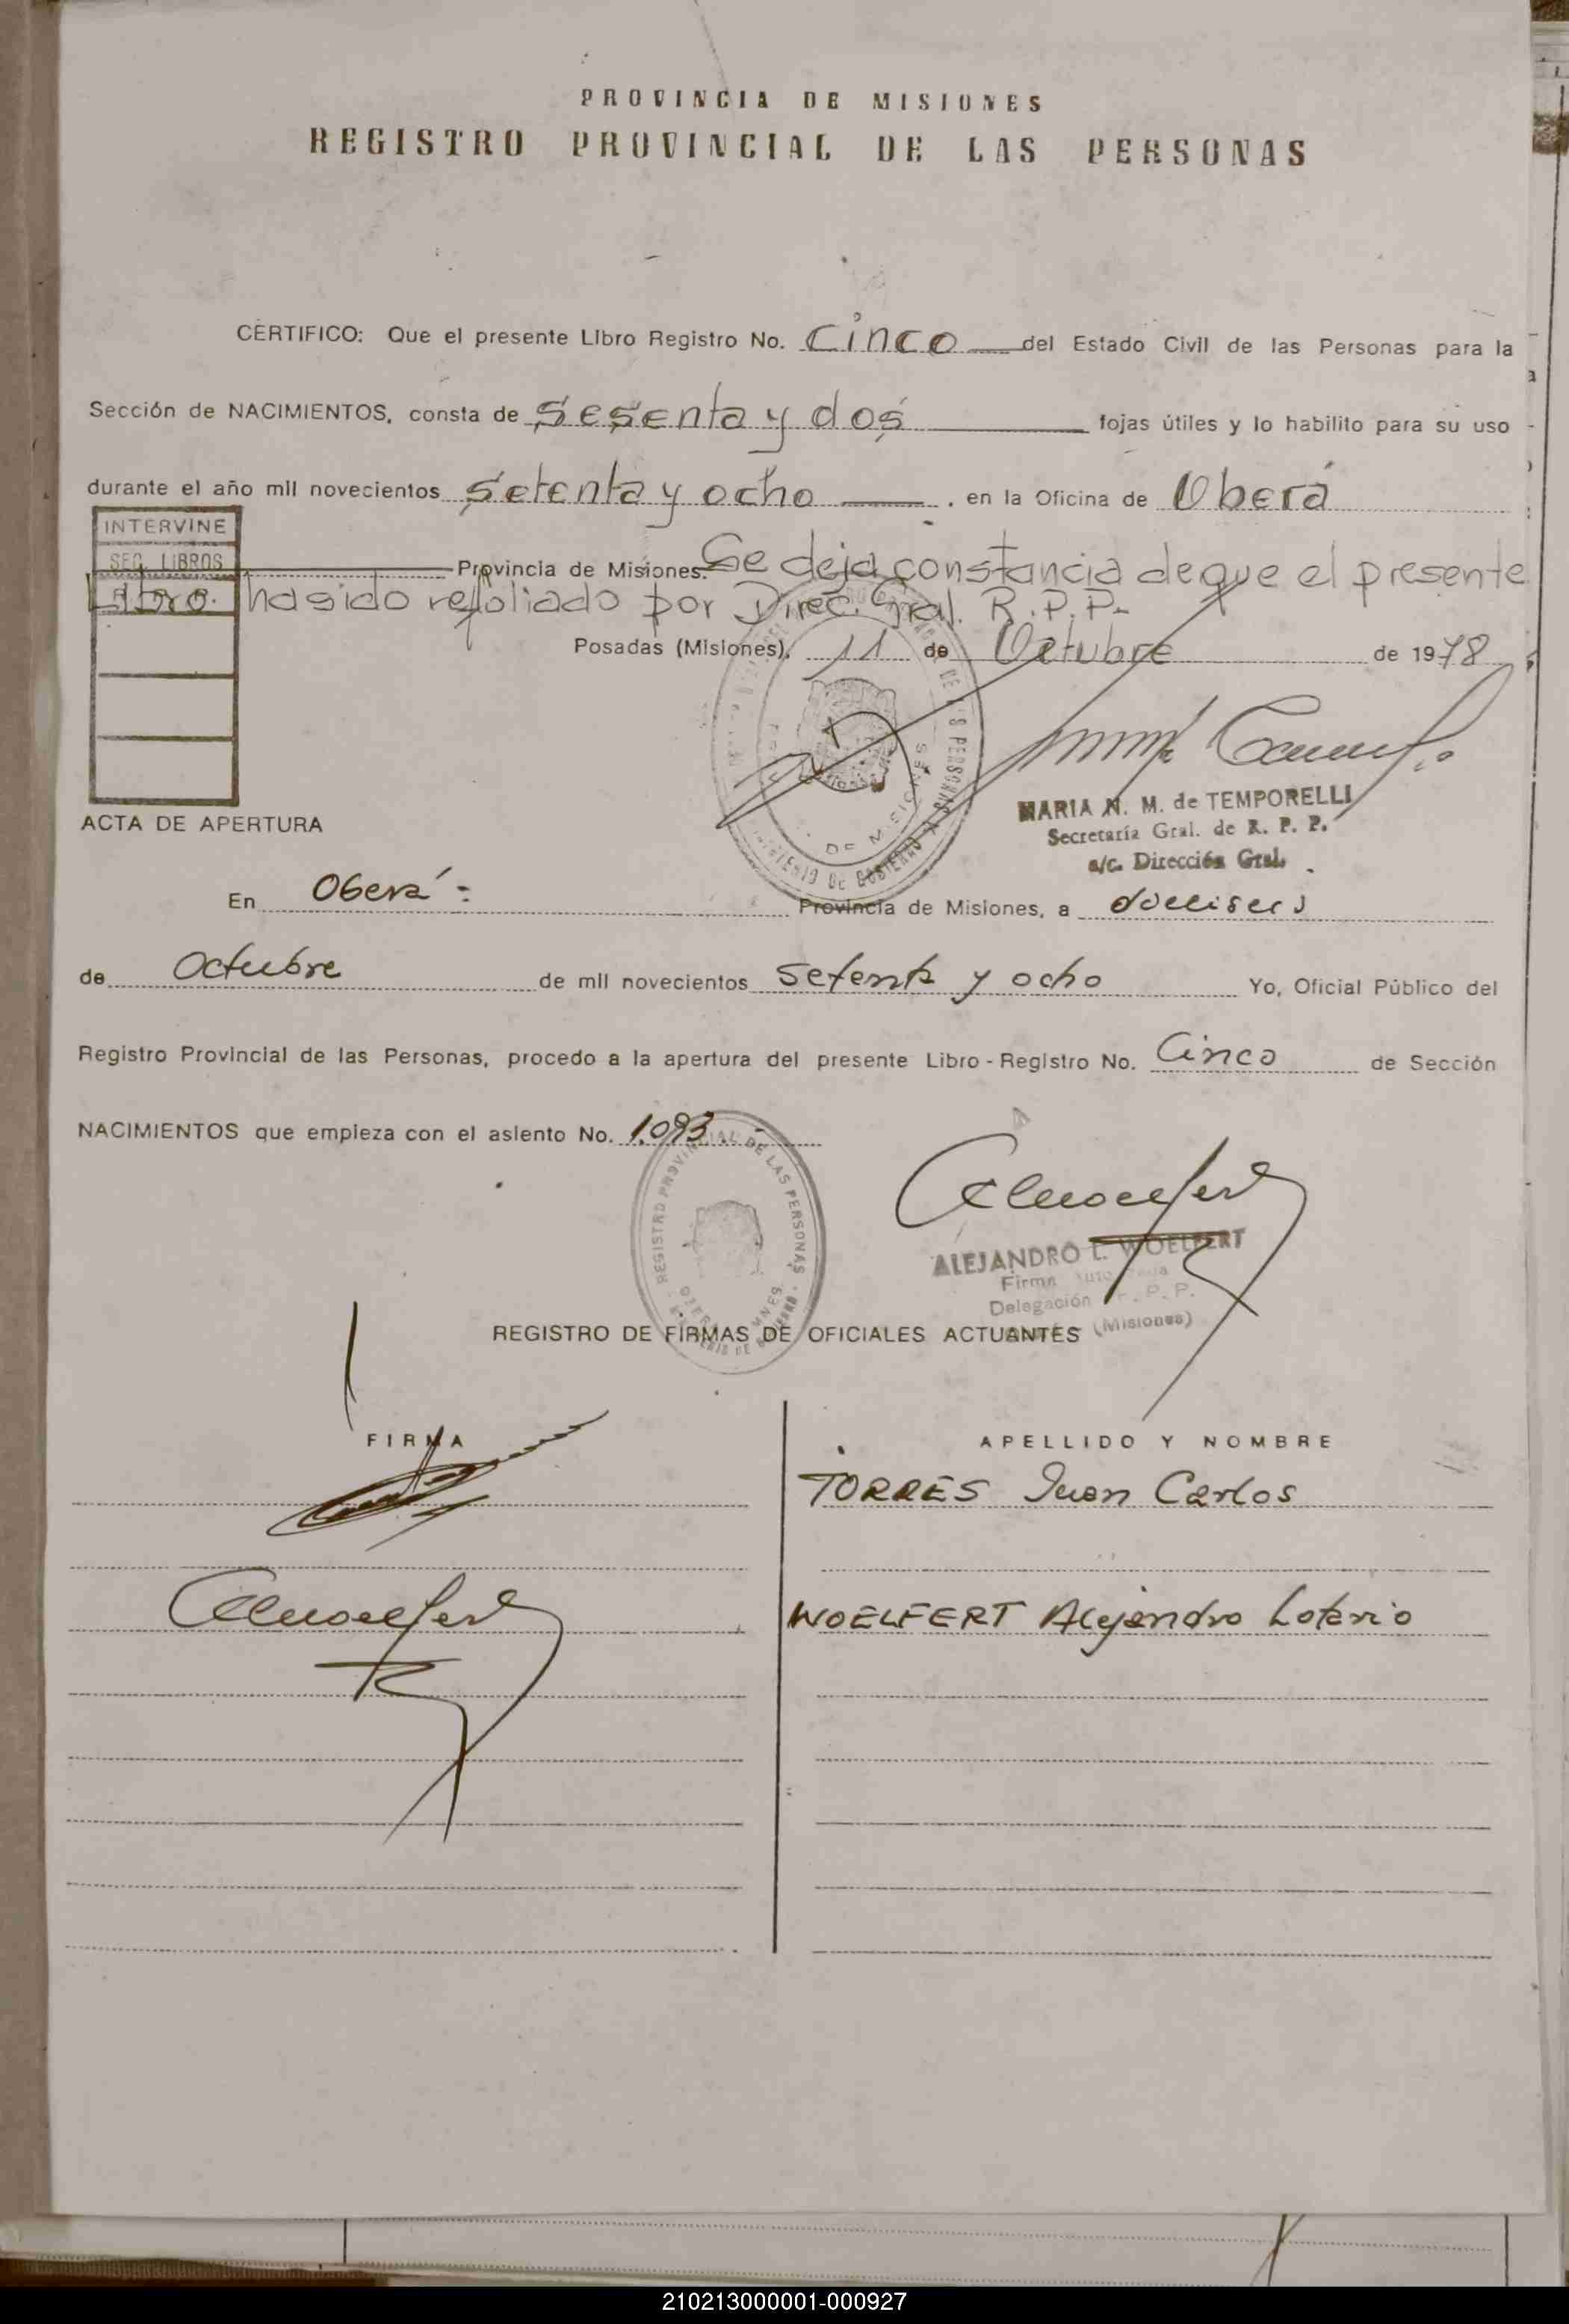 PROVINCIA DE MISIONES
REGISTRO PROVINCIAL DE LAS PERSONAS
CERTIFICO: Que el presente Libro Registro No. cinco del Estado Civil de las Personas para la
Sección de NACIMIENTOS, consta de Sesenta y dos fojas útiles y lo habilito para su uso
durante el año mil novecientos setenta y ocho, en la Oficina de Oberá
INTERVINE
SEC. LIBROS
Provincia de Misiones. Se deja constancia de que el presente
Libro. ha sido refoliado por Direc. Gral. R.P.P.
Posadas (Misiones), 11 de Octubre de 1978
MARIA N. M. de TEMPORELLI
Secretaría Gral. de R. P. P.
a/c. Dirección Gral.
ACTA DE APERTURA
En Oberá: Provincia de Misiones, a
de Octubre de mil novecientos setenta y ocho Yo, Oficial Público del
Registro Provincial de las Personas, procedo a la apertura del presente Libro - Registro No. Cinco de Sección
NACIMIENTOS que empieza con el asiento No. 1.093
REGISTRO PROVINCIAL DE LAS PERSONAS
ALEJANDRO L. WOELFERT
Firma
Delegación R. P. P.
(Misiones)
REGISTRO DE FIRMAS DE OFICIALES ACTUANTES
FIRMA APELLIDO Y NOMBRE
TORRES Juan Carlos
WOELFERT Alejandro Lotario
210213000001-000927